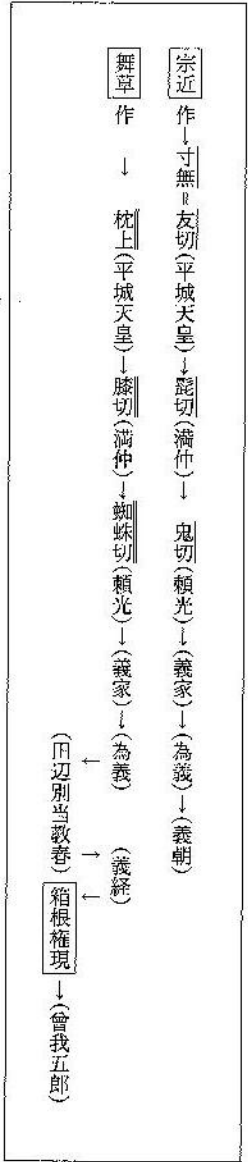 宗近 作↓寸無=友切(平城天皇)↓髭切(満仲)↓ 鬼切(頼光)↓(義家)↓(為義)↓(義朝)
舞草 作 ↓ 枕上(平城天皇)↓膝切(満仲)↓蜘蛛切(頼光)↓(義家)↓(為義) (義経)
← → ←
(田辺別当教春) 箱根権現↓(曾我五郎)